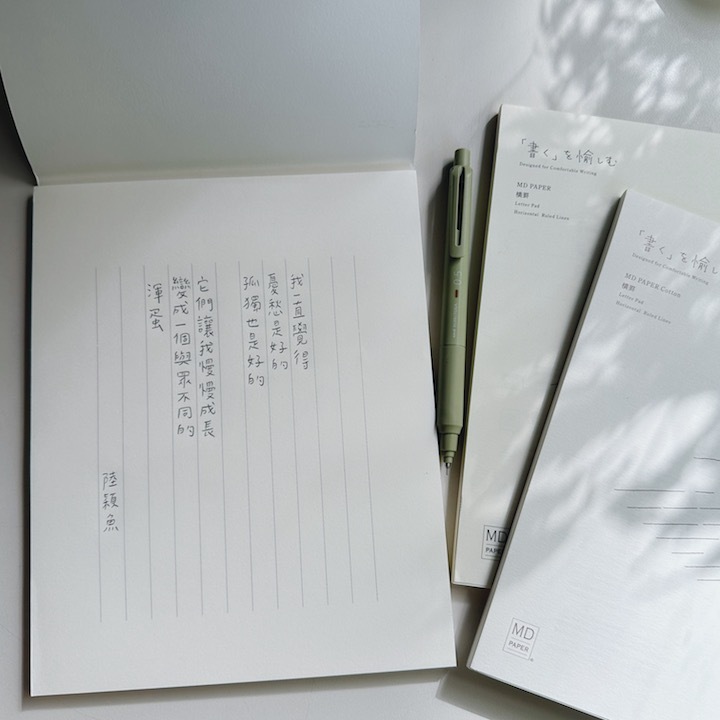 我一直覺得
憂愁是好的
孤獨也是好的
它們讓我慢慢成長
變成一個與眾不同的
渾蛋
陸穎魚
0.5
「書く」を愉しむ
Designed for Comfortable Writing
MD PAPER
横罫
Letter Pad
Horizontal Ruled Lines
MD
PAPER
「書く」を愉し
Designed for Comfortable Writing
MD PAPER Cotton
横罫
Letter Pad
Horizontal Ruled Lines
MD
PAPER